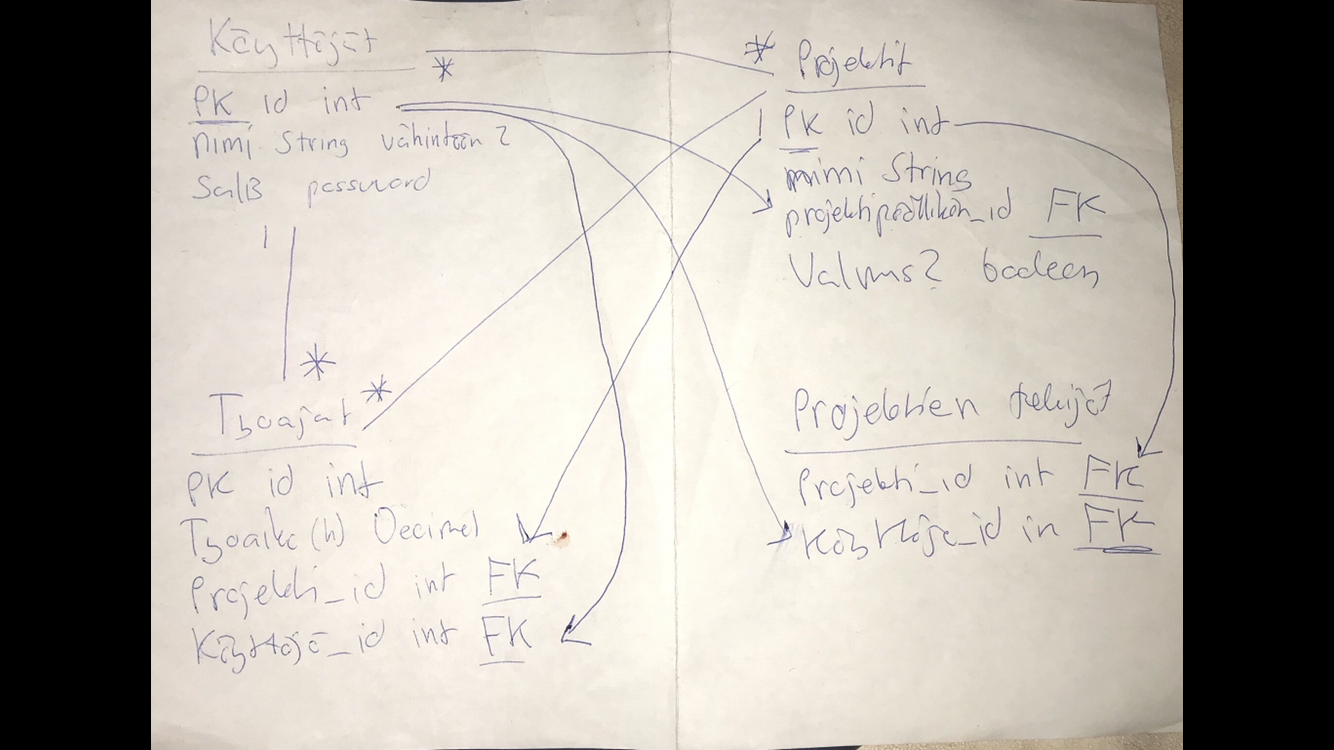 Käyttäjät
*
PK id int
nimi String vähintään 2
password
1
*
Työajat *
PK id int
Työaika (h) Decimal
Projekti_id int FK
Käyttäjä_id int FK
* Projektit
1 PK id int
nimi String
projektipäällikön_id FK
Valmis? boolean
Projektien tekijät
Projekti_id int FK
Käyttäjä_id in FK